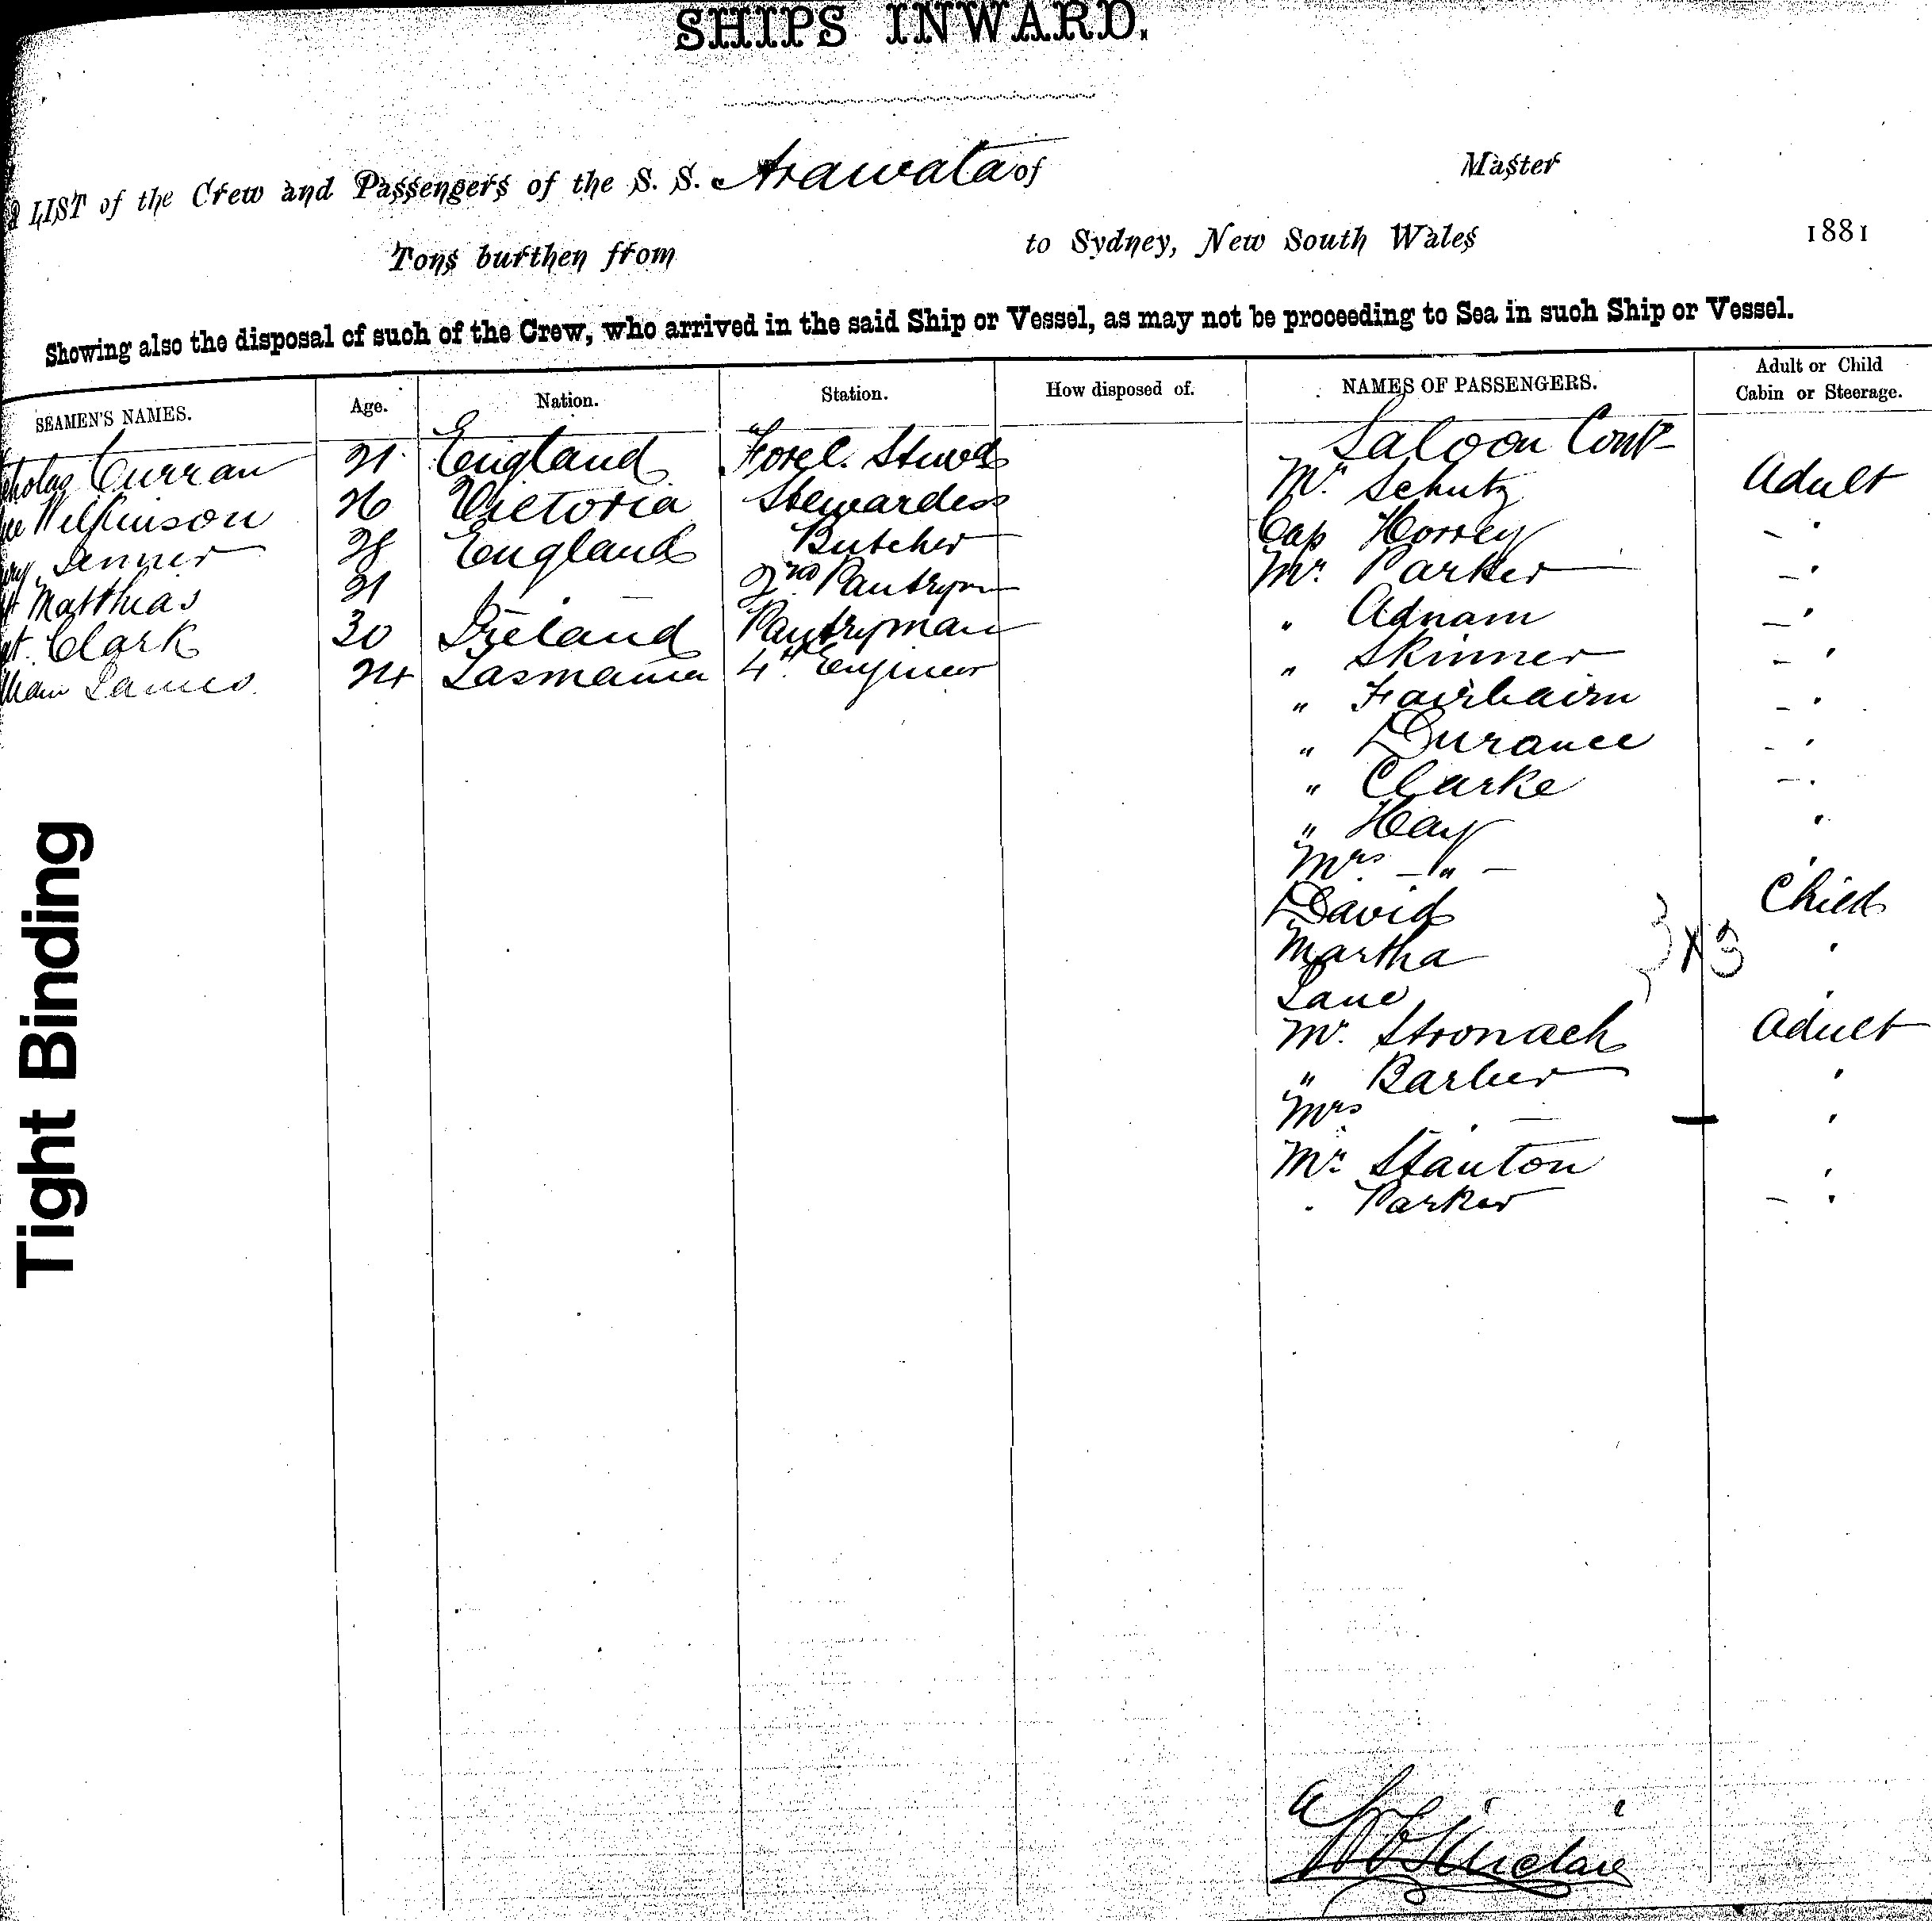 SHIPS INWARD.
A LIST of the Crew and Passengers of the S. S. Arawata of Master
Tons burthen from to Sydney, New South Wales 1881
Showing also the disposal of such of the Crew, who arrived in the said Ship or Vessel, as may not be proceeding to Sea in such Ship or Vessel.
SEAMEN'S NAMES. Age. Nation. Station. How disposed of. NAMES OF PASSENGERS. Adult or Child Cabin or Steerage.
Saloon Cont
cholas Curran 21 England Forecl. Stewd Mr. Schutz Adult
Wilkinson 26 Victoria Stewardess Cap Horrey - "
Jenner 28 England Butcher Mr. Parker - "
Matthias 21 " - 2nd Pantrym " Adnam - "
t. Clark 30 Ireland Pantryman " Skinner - "
lliam James 24 Tasmania 4th Engineer " Fairbairn - "
" Durance - "
" Clarke - "
" Hay "
Mrs - " - "
David Child
Martha } 3 x 3 "
Jane "
Mr. Stronach Adult
" Barber "
Mrs " - "
Mr. Stanton "
" Parker - "
Tight Binding
Sinclair